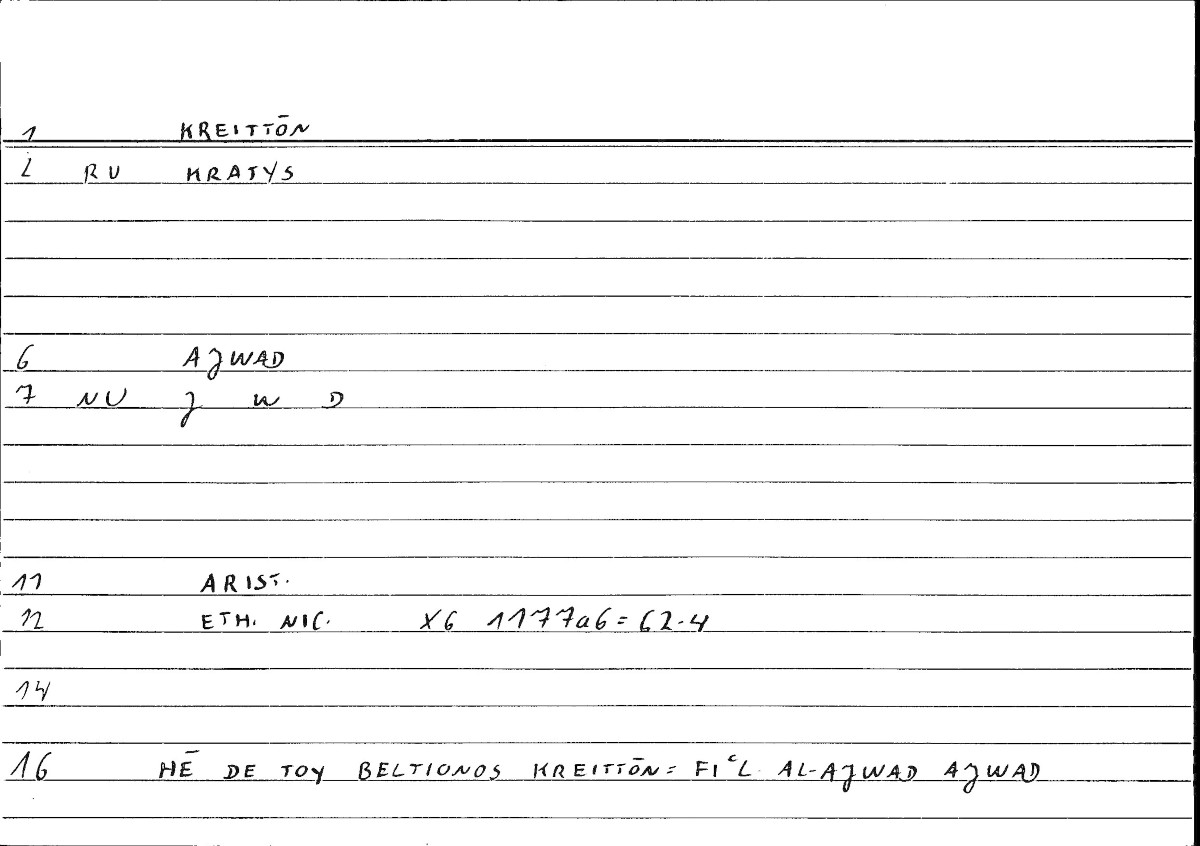 1 KREITTŌN
2 RU KRATYS
6 AJWAD
7 NU J W D
11 ARIST.
12 ETH. NIC. X6 1177a6 = 62.4
14
16 HĒ DE TOY BELTIONOS KREITTŌN = FIᶜL AL-AJWAD AJWAD